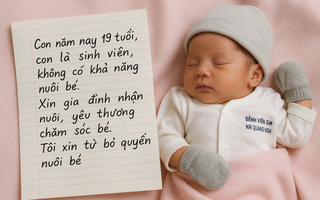 Con năm nay 19 tuổi,
con là sinh viên,
không có khả năng
nuôi bé.
Xin gia đình nhận
nuôi, yêu thương
chăm sóc bé.
Tôi xin từ bỏ quyền
nuôi bé
BỆNH VIỆN SẢN
NHI QUANG